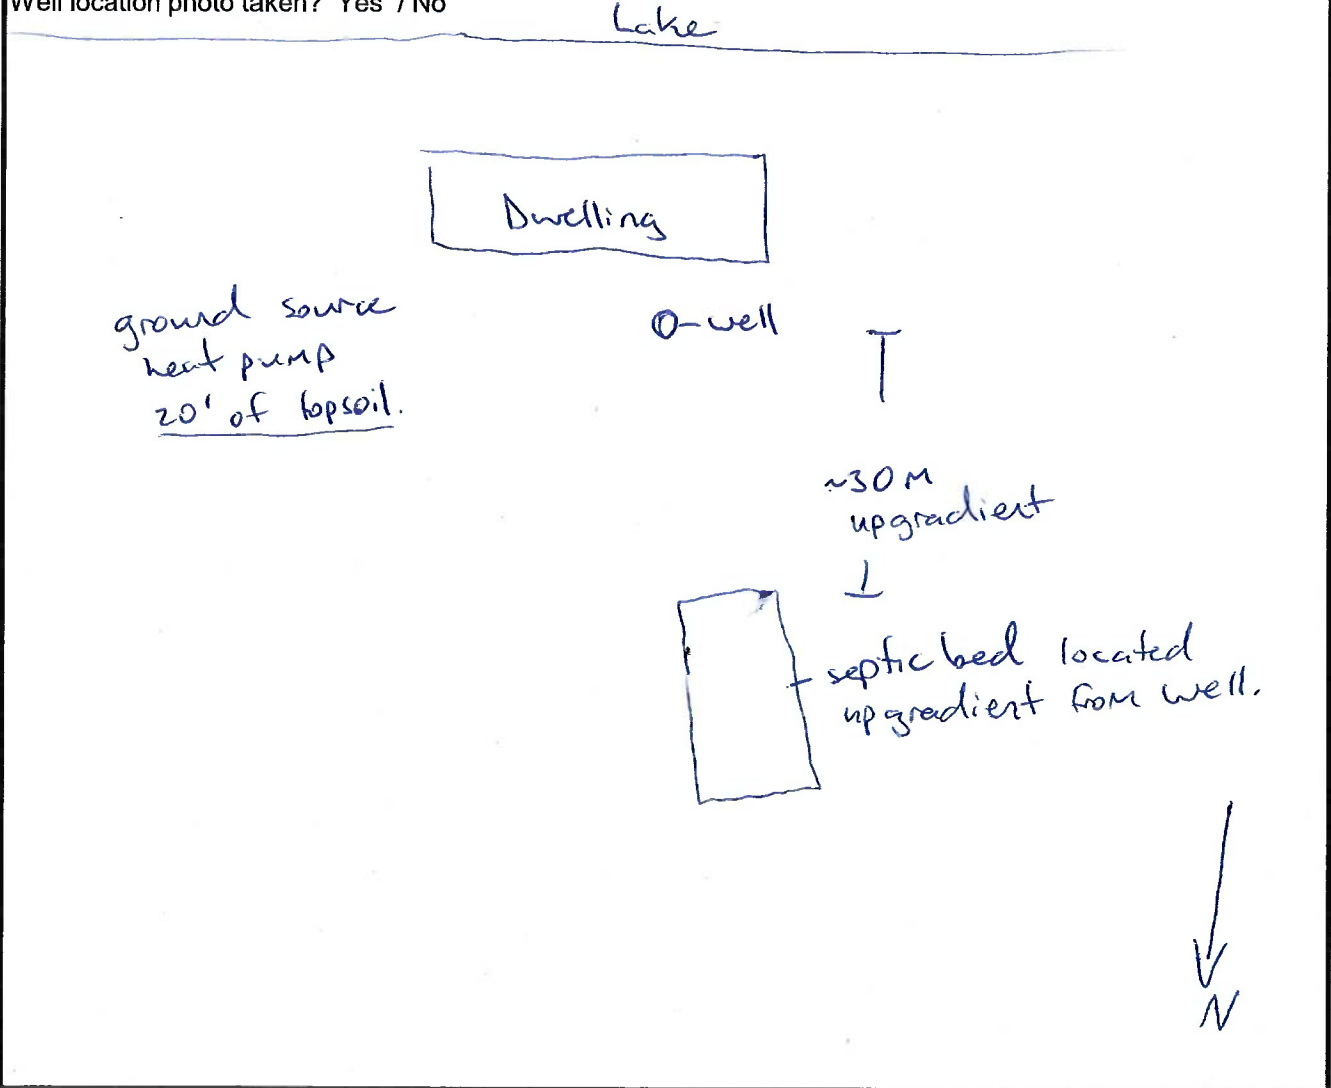 Well location photo taken? Yes / No
Lake
Dwelling
ground source
heat pump
20' of topsoil.
O-well
~30M
upgradient
septic bed located
upgradient from well.
N